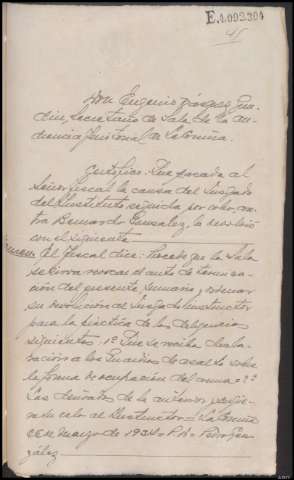 E.4.092.304
Don Eugenio Vázquez Gun-
din, Secretario de Sala de la Au-
diencia Territorial de La Coruña.
Certifico: Que pasada al
señor fiscal la causa del Juzgado
del Instituto seguida por robo, con-
tra Bernardo Gonzalez, la devolvió
con el siguiente
El Fiscal dice: Procede que la Sala
se sirva revocar el auto de termina-
ción del presente sumario, y ordenar
su devolución al Juzgado instructor
para la práctica de las diligencias
siguientes: 1ª Que se reciba decla-
ración a los Guardias de asalto sobre
la forma de ocupación del arma = 2ª
Las derivadas de la anterior
al Instructor = La Coruña
de marzo de 1934 = P. D. = Pedro Gon-
zález